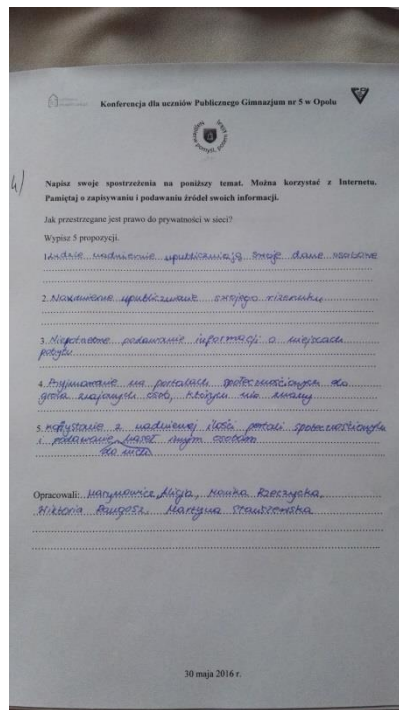 Konferencja dla uczniów Publicznego Gimnazjum nr 5 w Opolu
4)
Napisz swoje spostrzeżenia na poniższy temat. Można korzystać z Internetu.
Pamiętaj o zapisywaniu i podawaniu źródeł swoich informacji.
Jak przestrzegane jest prawo do prywatności w sieci?
Wypisz 5 propozycji.
1. Ludzie nadmiernie upubliczniają swoje dane osobowe
2. Nadmierne upublicznianie swojego wizerunku
3. Niepotrzebne podawanie informacji o miejscach
pobytu
4. Przyjmowanie na portalach społecznościowych do
grona znajomych osób, których nie znamy
5. Korzystanie z nadmiernej ilości portali społecznościowych
i podawanie haseł innym osobom
do nich
Opracowali: Marynowicz Alicja, Monika Rzeczycka,
Wiktoria Długosz, Martyna
30 maja 2016 r.